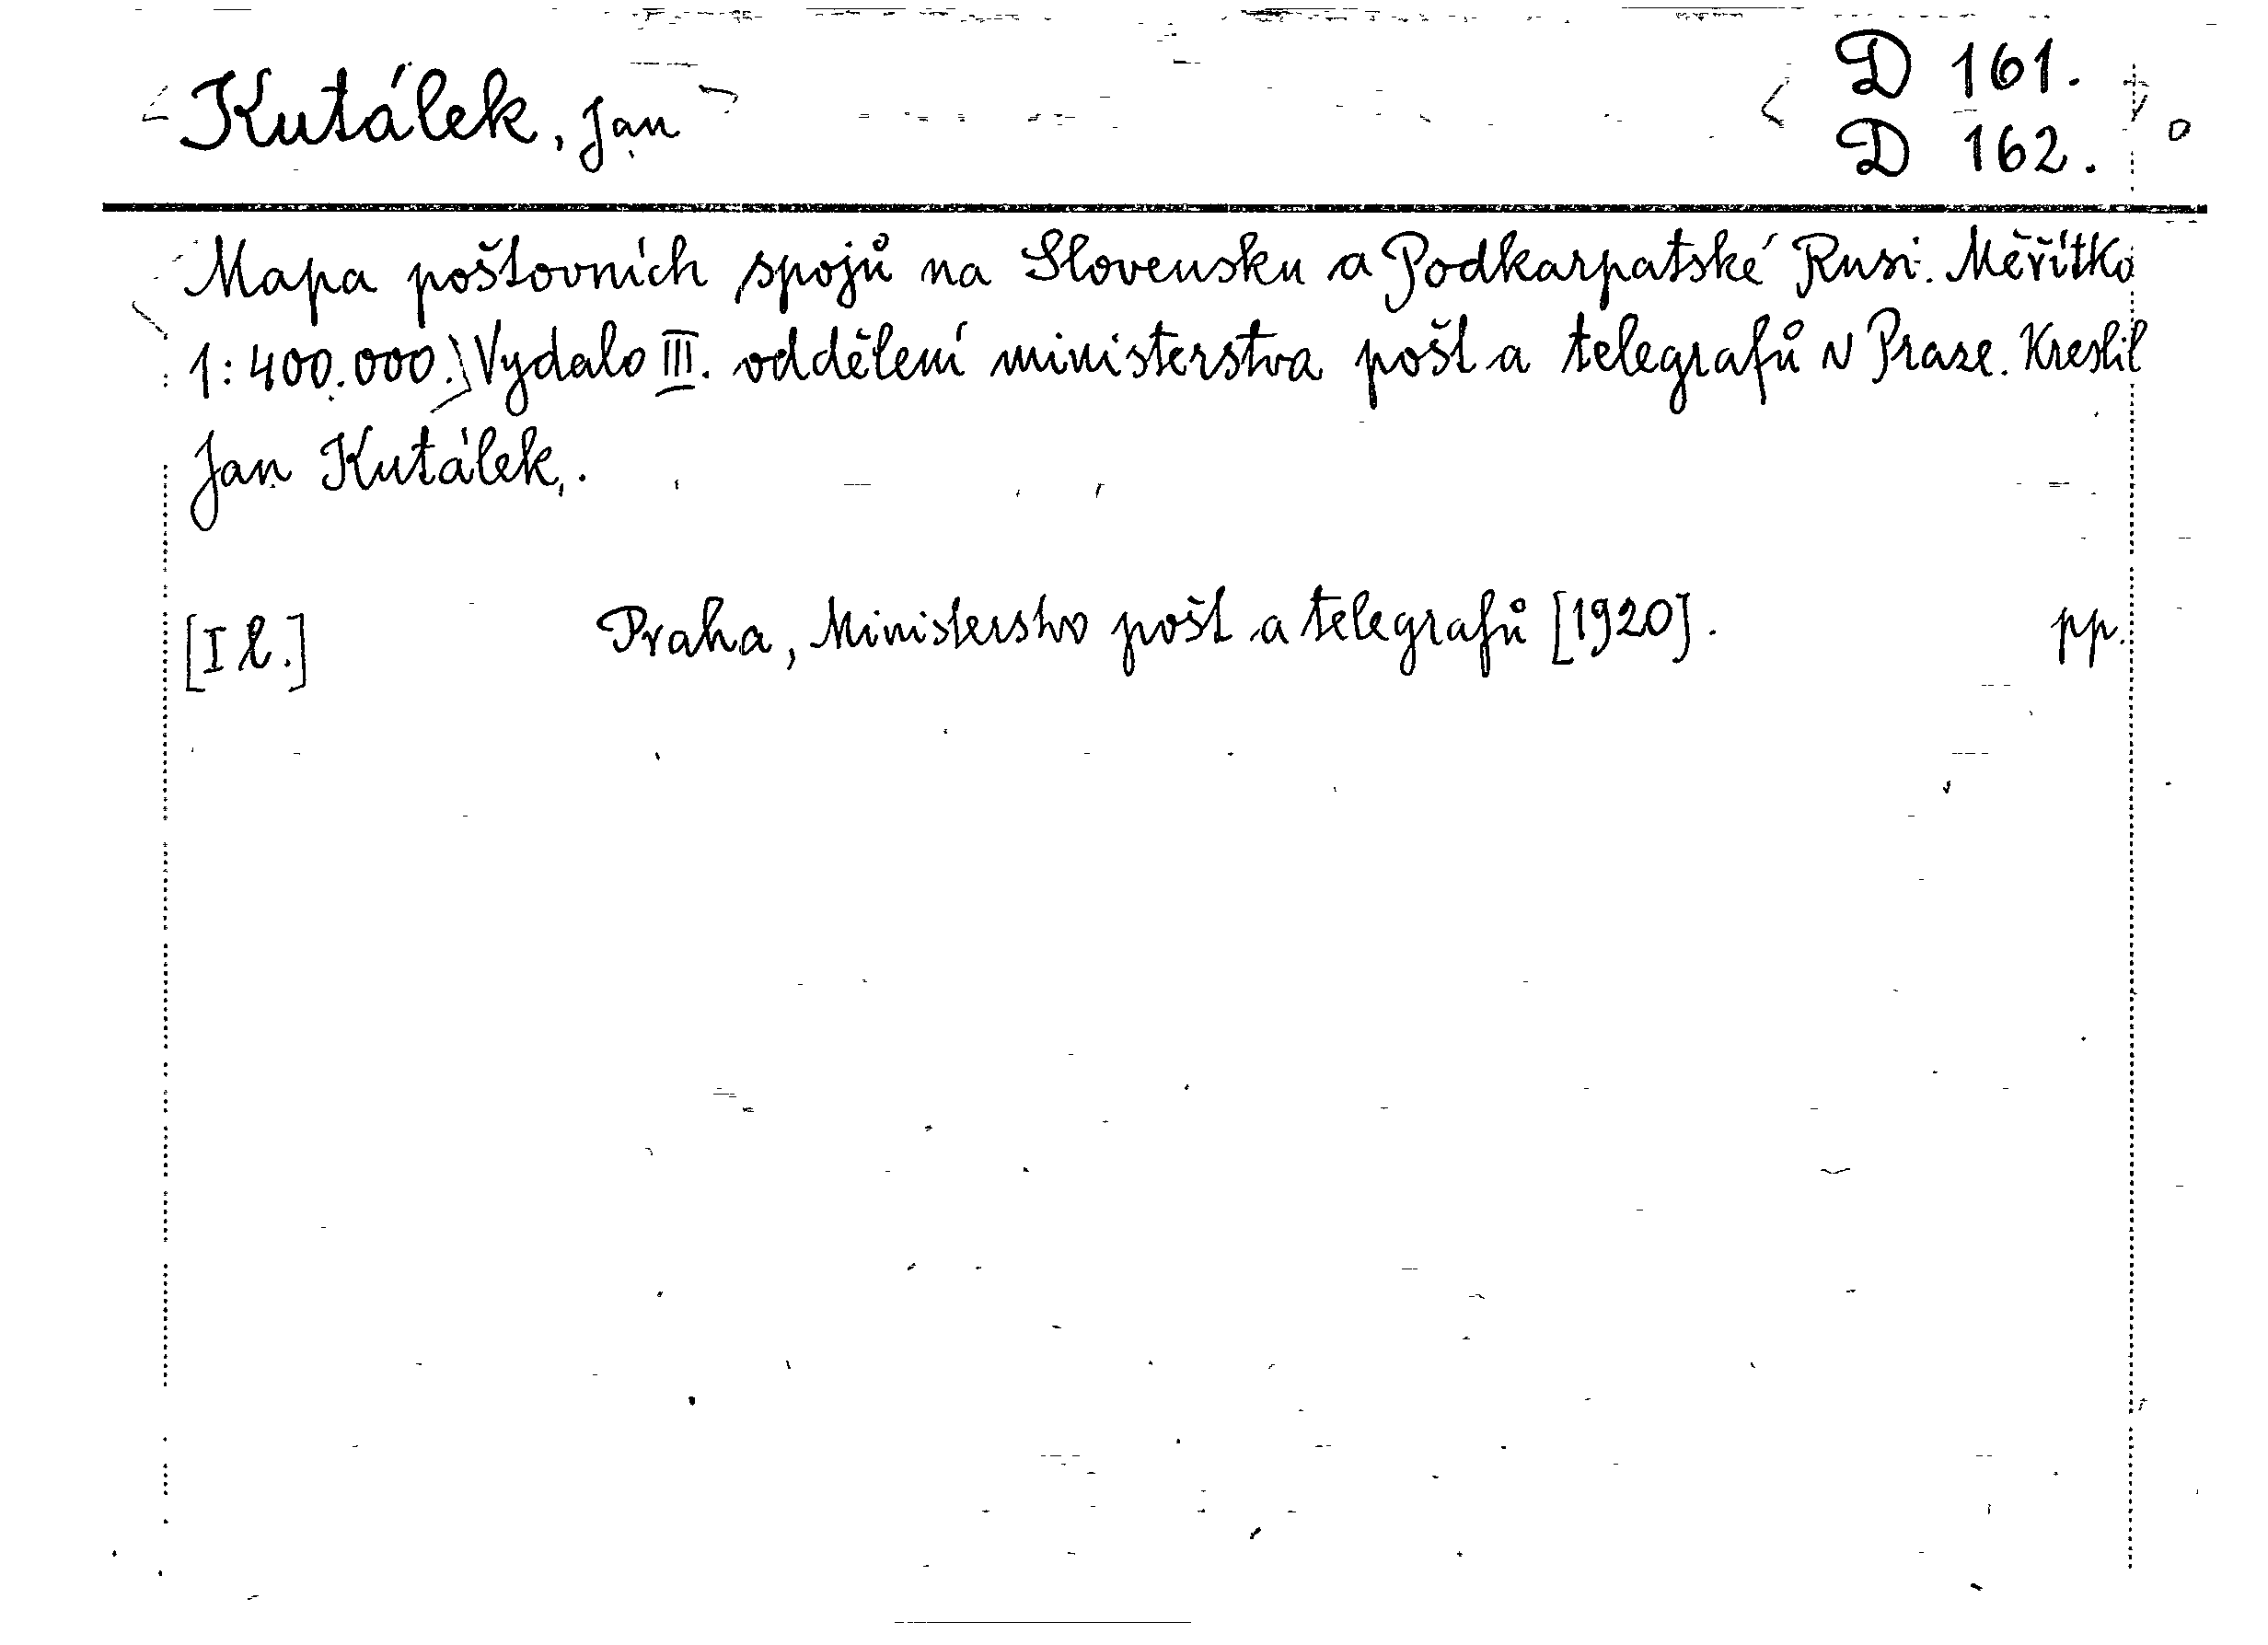 Kutálek, Jan D 161.
D 162.
Mapa poštovních spojů na Slovensku a Podkarpatské Rusi. Měřítko
1:400.000. Vydalo III. oddělení ministerstva pošt a telegrafů v Praze. Kreslil
Jan Kutálek.
[I l.] Praha, Ministerstvo pošt a telegrafů [1920]. pp.